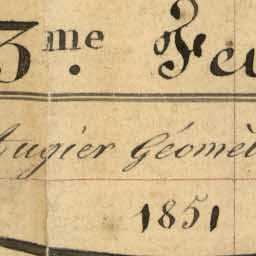 3.me Feu
Augier Géomèt
1851